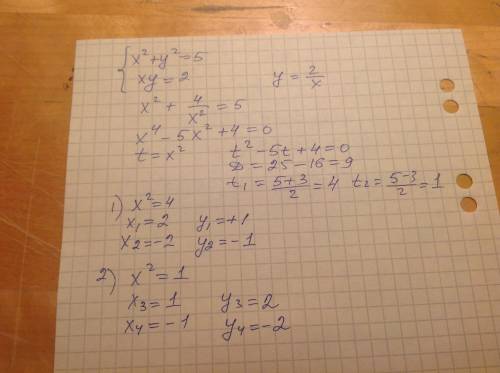 { x² + y² = 5
xy = 2    y = 2/x
x² + 4/x² = 5
x⁴ - 5x² + 4 = 0
t = x²    t² - 5t + 4 = 0
D = 25 - 16 = 9
t₁ = (5+3)/2 = 4    t₂ = (5-3)/2 = 1
1) x² = 4
x₁ = 2    y₁ = +1
x₂ = -2    y₂ = -1
2) x² = 1
x₃ = 1    y₃ = 2
x₄ = -1    y₄ = -2